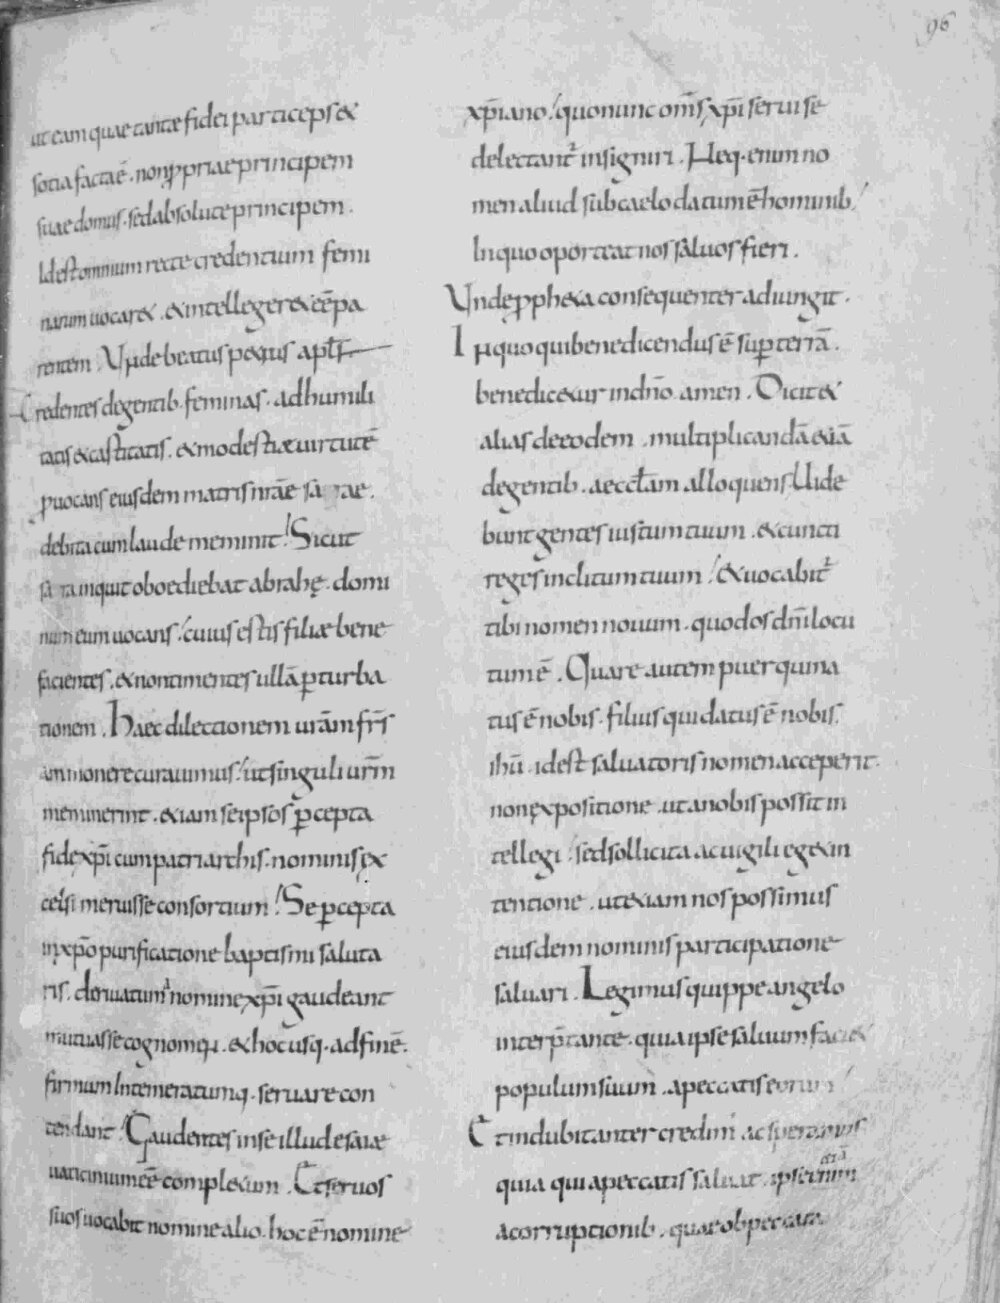 96
ut eam quae tantae fidei particeps et
sotia factaē . non ꝓpriae principem
suae domus . sed absolute principem .
Id est omnium recte credentium femi
narum uocaret . et intellegeret eē pa
rentem . Unde beatus petrus apłs
Credentes de gentib . feminas . ad humili
tatis et castitatis . et modestiae uirtutē
ꝓuocans eiusdem matris nrāe sarrae .
debita cum laude meminit . Sicut
sarra inquit oboediebat abrahę . domi
num eum uocans . cuius estis filiae bene
facientes . et non timentes ullā ꝑturba
tionem . Haec dilectionem urām frs̄
ammonere curauimus . ut singuli urm̄
meminerint . etiam se ipsos ꝑcepta
fide xpī cum patriarchis . nominis ex
celsi meruisse consortium . Se ꝑcepta
in xpō purificatione baptismi saluta
ris . deriuatum nomine xpī gaudeant
mutuasse cognomen . et hoc usq . ad finē .
firmum Intemeratumq . seruare con
tendant . Gaudentes in se illud esaiae
uaticinium eē completum . Et seruos
suos uocabit nomine alio . hoc ē nomine
xpīano . quo nunc oms̄ xpī serui se
delectant insigniri . Neq . enim no
men aliud sub caelo datum ē hominib .
In quo oporteat nos saluos fieri .
Unde ꝓpheta consequenter adiungit .
In quo qui benedicendus ē suꝑ terrā .
benedicetur in dnō . amen . Dicit et
alias de eodem . multiplicandā etiā
de gentib . aeccłam alloquens Uide
bunt gentes iustum tuum . et cuncti
reges inclitum tuum . et uocabit
tibi nomen nouum . quod os dnī locu
tum ē . Quare autem puer qui na
tus ē nobis . filius qui datus ē nobis .
ihū . id est saluatoris nomen acceperit .
non expositione . ut a nobis possit in
tellegi . sed sollicita ac uigili eget in
tentione . ut etiam nos possimus
eiusdem nominis participatione
saluari . Legimus quippe angelo
interp̄tante . quia ipse saluum faciet
populum suum . a peccatis eorum
Et indubitanter credim ac speramus
quia qui a peccatis saluat . ipse etiā
a corruptionib . quae ob peccata